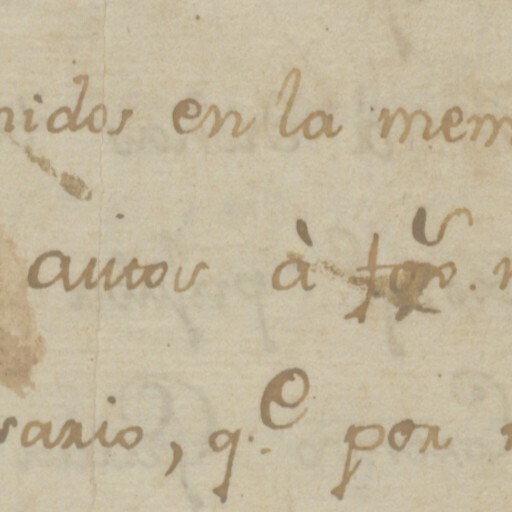 nidos en la mem
autos à
sario, q.e por